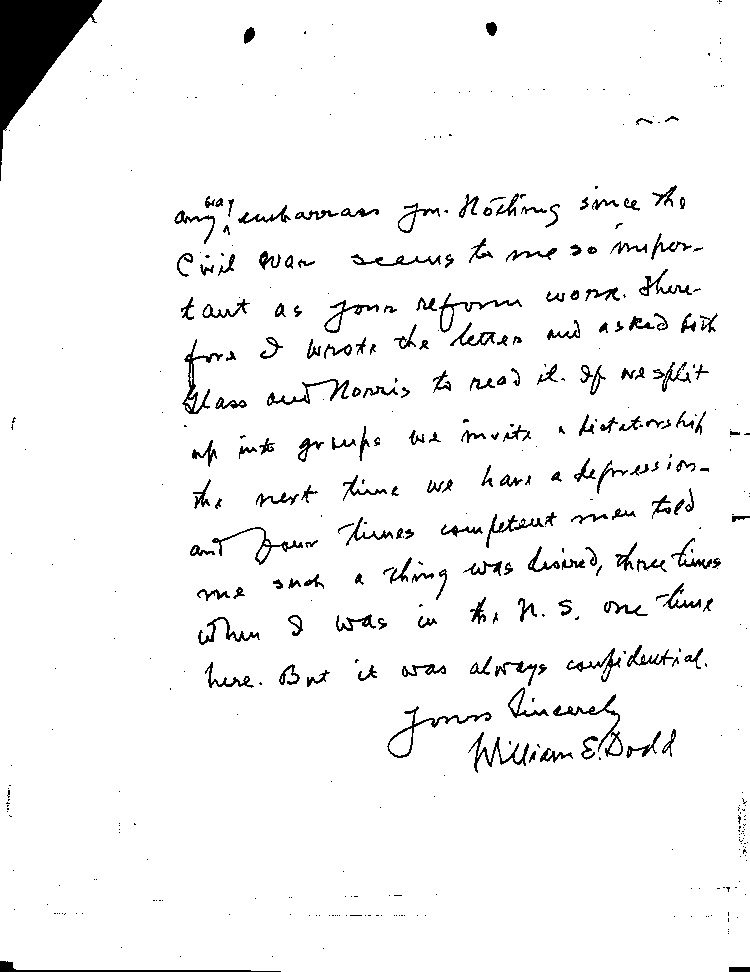 any way embarrass you. Nothing since the
Civil War seems to me so impor-
tant as your reform work. There-
fore I wrote the letter and asked both
Glass and Norris to read it. If we split
up into groups we invite a dictatorship
the next time we have a depression-
and four times competent men told
me such a thing was desired, three times
when I was in the U. S. one time
here. But it was always confidential.
Yours Sincerely
William E. Dodd